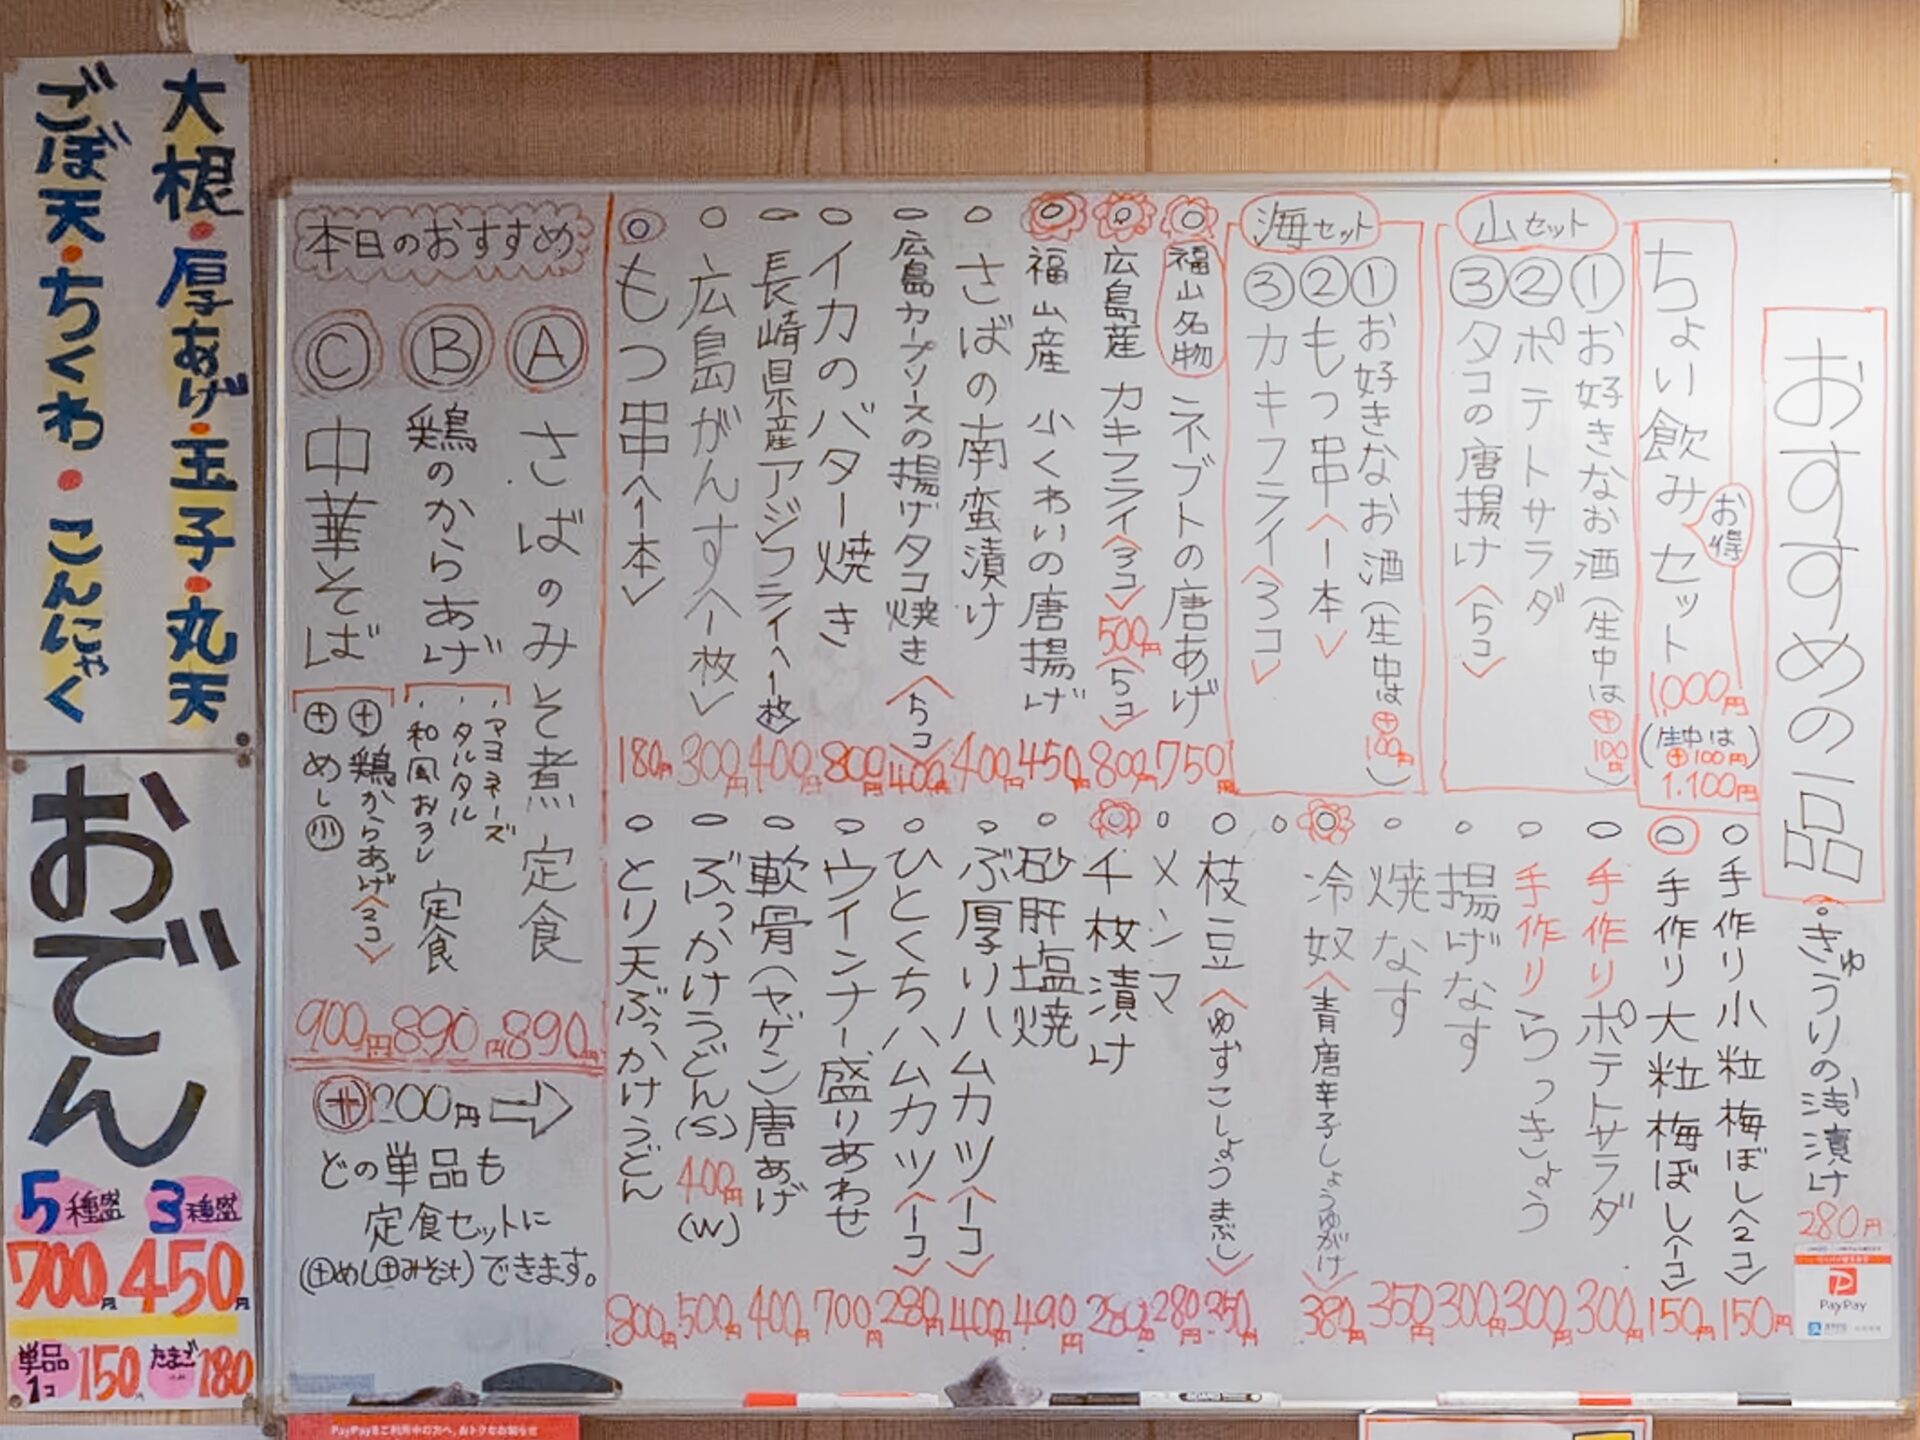 大根・厚あげ・玉子・丸天
ごぼ天・ちくわ・こんにゃく
おでん
3種盛
450円
5種盛
700円
たまご
180
単品
1コ
150円
おすすめの一品
。きゅうりの浅漬け
280円
PayPay
ちょい飲みセット
お得
1,000円
(生中は
⊕100円)
1,100円
山セット
①お好きなお酒(生中は⊕100円)
②ポテトサラダ
③タコの唐揚げ〈5コ〉
海セット
①お好きなお酒(生中は⊕100円)
②もつ串〈1本〉
③カキフライ〈3コ〉
○福山名物 ネブトの唐あげ 750円
○広島産 カキフライ〈3コ〉500円〈5コ〉800円
○福山産 小くわいの唐揚げ 450円
○さばの南蛮漬け 400円
○広島カープソースの揚げタコ焼き〈5コ〉400円
○イカのバター焼き 800円
○長崎県産アジフライ〈1枚〉400円
○広島がんす〈1枚〉300円
○もつ串〈1本〉180円
○手作り小粒梅ぼし〈2コ〉150円
○手作り大粒梅ぼし〈1コ〉150円
○手作りポテトサラダ 300円
○手作りらっきょう 300円
○揚げなす 300円
○焼なす 350円
○冷奴〈青唐辛子しょうゆがけ〉380円
○
○枝豆〈ゆずこしょうまぶし〉350円
○メンマ 280円
○千枚漬け 280円
○砂肝塩焼 490円
○ぶ厚いハムカツ〈1コ〉400円
○ひとくちハムカツ〈1コ〉280円
○ウインナー盛りあわせ 700円
○軟骨(ヤゲン)唐あげ 400円
○ぶっかけうどん(S)400円(W)500円
○とり天ぶっかけうどん 800円
本日のおすすめ
Ⓐ さばのみそ煮 定食 890円
Ⓑ 鶏のからあげ
・マヨネーズ
・タルタル
・和風おろし
定食 890円
Ⓒ 中華そば
⊕鶏からあげ〈2コ〉
⊕めし㊥
900円
⊕200円⇨
どの単品も
定食セットに
(⊕めし⊕みそ汁)できます。
PayPayをご利用中の方へ、おトクなお知らせ